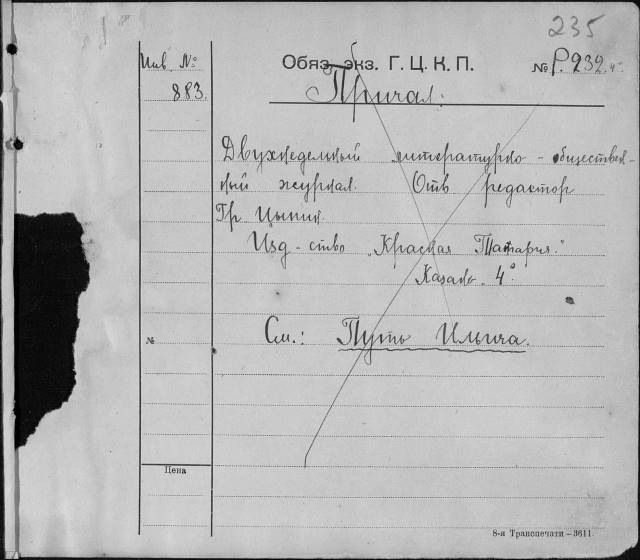 235
Инв. №
Обяз. экз. Г. Ц. К. П.
№ Р. 932. 4°
883.
Причал:
Двухнедельный литературно-обществен-
ный журнал. Отв редактор
Гр Цыпин.
Изд-ство „Красная Татария."
Казань. 4°.
№
См.: Путь Ильича.
Цена
8-я Транспечати—3611.